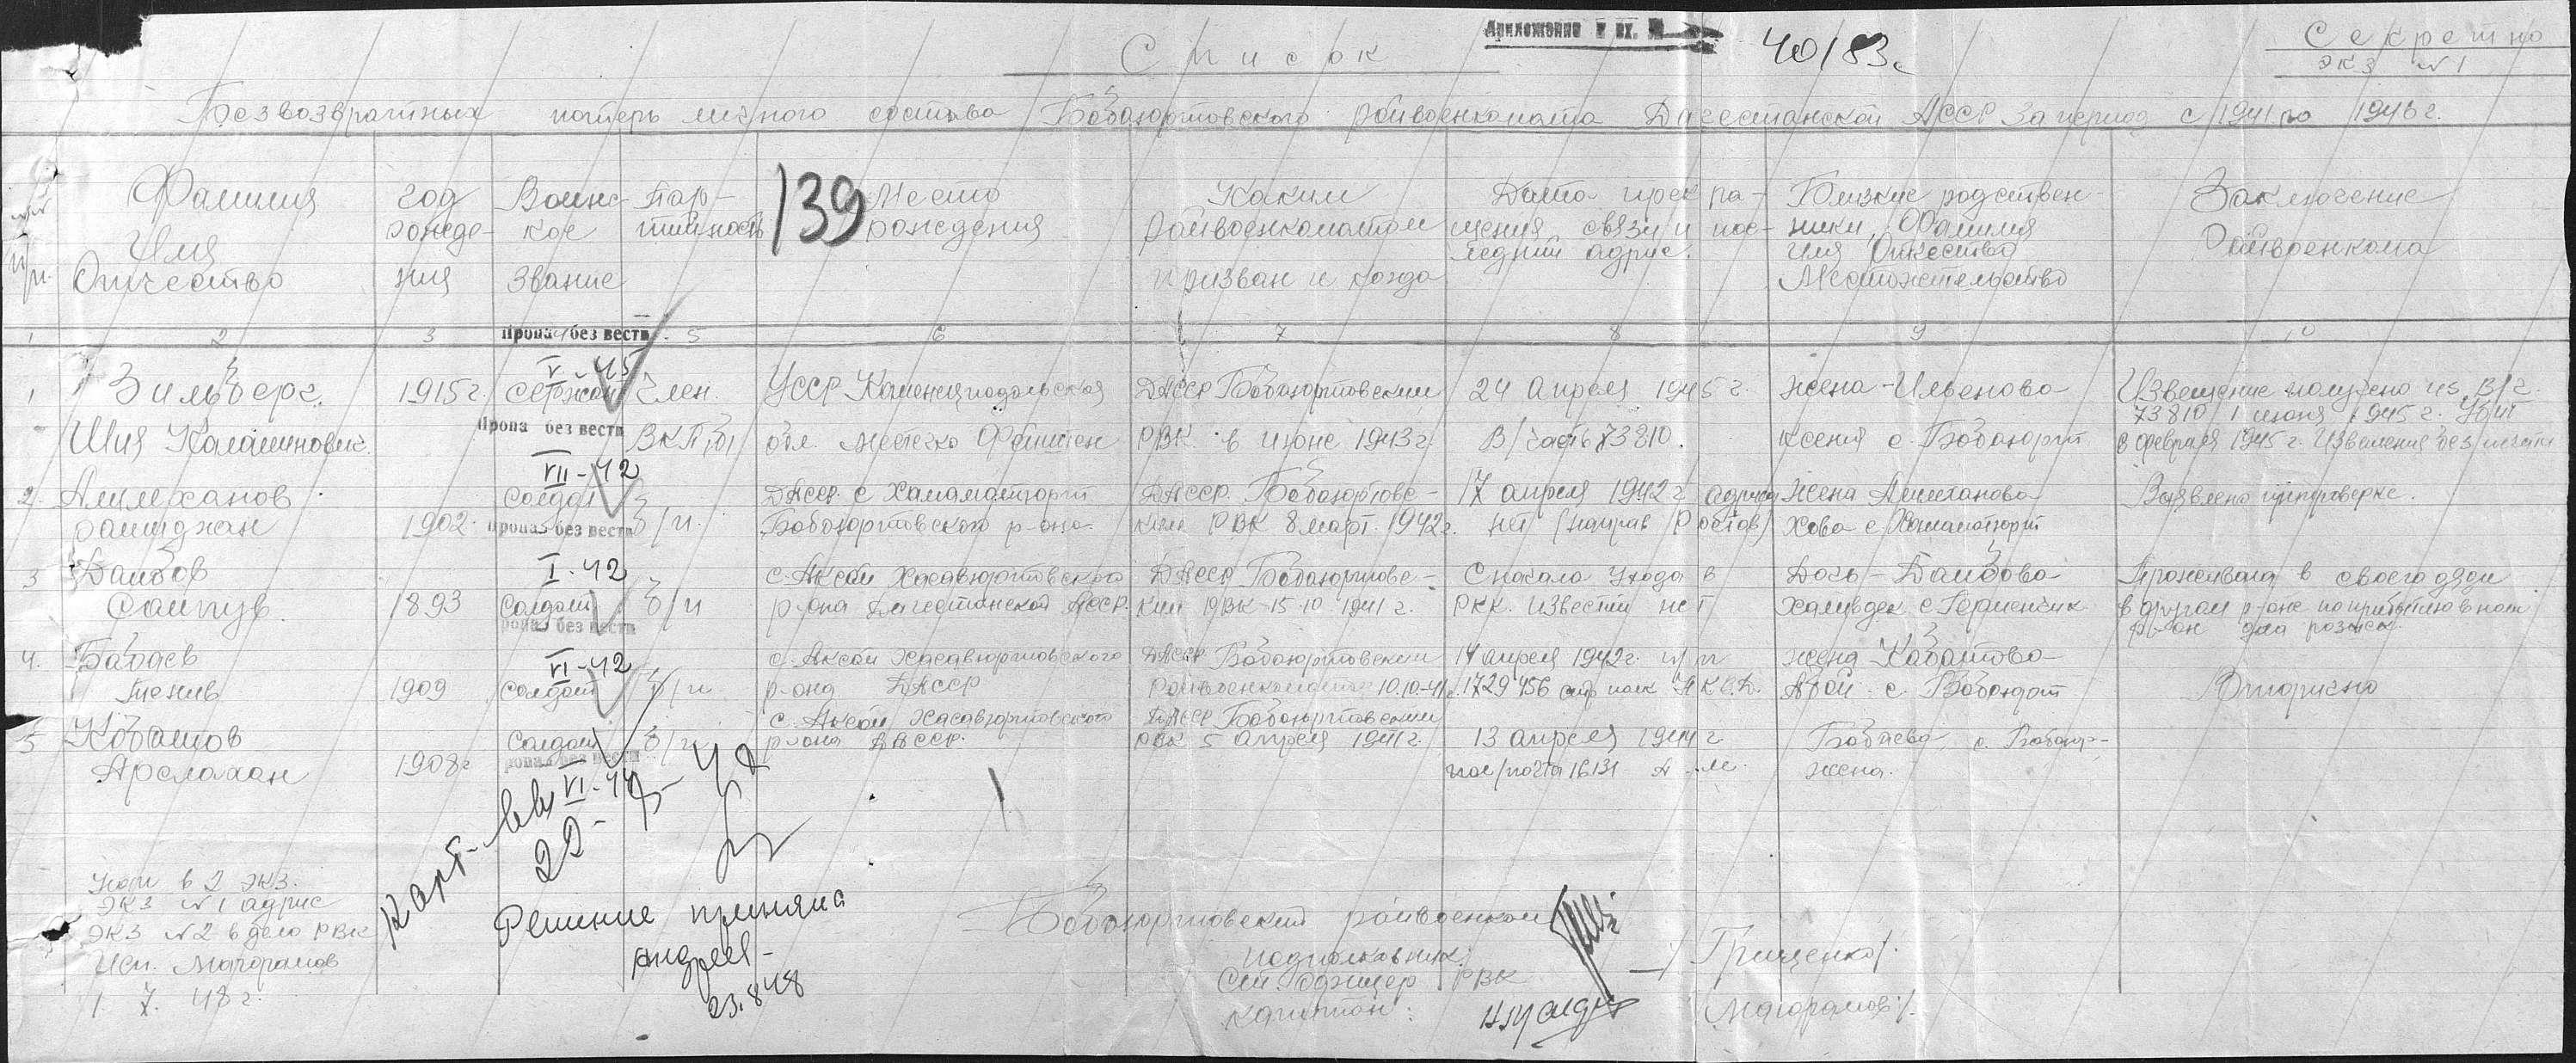 Приложение к вх. №
40183с
Секретно
экз №1
Список
Безвозвратных потерь личного состава Бабаюртовского райвоенкомата Дагестанской АССР за период с 1941 по 1946 г.
139
№№ п/п.
Фамилия Имя Отчество
год рождения
Воинское звание
Партийность
Место рождения
Каким райвоенкоматом призван и когда
Дата прекращения связи и последний адрес.
Близкие родственники, Фамилия имя Отчество Местожительство
Заключение Райвоенкома
1 2 3 4 5 6 7 8 9 10
Пропал без вести
V-45
1 Зильберг. 1915 г. сержант член. УССР Каменецподольская ДАССР Бабаюртовский 24 апреля 1945 г. жена-Ильенова Извещение получено из В/ч.
73810 1 июня 1945 г. Убит
Пропал без вести
Шия Каламинович. ВКП/б/ обл. местечко РВК в июне 1943 г. В/часть 73810. Ксения с. Бабаюрт в феврале 1945 г. Извещения без печати
VII-42
2. Алимханов солдат ДАССР. с Хамаматюрт ДАССР. Бабаюртовс- 17 апреля 1942 г адреса Жена Алимханова Выявлено при проверке.
рашиджан 1902. б/п. Бабаюртовского р-она. кий РВК 8 март. 1942 г. нет (направ Ростов) Хова с Хамаматюрт
Пропал без вести
I-42
3 Даибов с. Аксай Хасавюртовского ДАССР Бабаюртовс- С начала ухода в Дочь-Даибова Проживала в своего дяди
Саипув. 1893 солдат б/п р-она Дагестанской АССР. кий РВК-15-10-1941 г. РКК. известий нет с. Герменчик в другом р-оне по прибытию в наш
р-он дала розыск.
пропал без вести
VI-42
4. Бабаев с. Аксай Хасавюртовского ДАССР Бабаюртовский 14 апреля 1942 г. п/п жена Кабашова
1909 солдат б/п р-она ДАССР райвоенкоматом 10.10-41 г. 1729 456 стр полк Абай с. Бабаюрт Вторично
5 Кабашов солдат б/п с. Аксай Хасавюртовского ДАССР Бабаюртовский
Арслахан 1908 г р-она ДАССР. РВК 5 апреля 1941 г. 13 апреля 1944 г. Бабаева, с. Бабаюр-
пол/почта 16131 жена.
пропал без вести
VI-44
карт.
22-5-42
Решение приняла
Андреев-
23.8.48
в 2 экз.
экз №1 адрес
экз №2 в дело РВК
Исп. Магорамов
1. 7. 48 г.
Бабаюртовский райвоенком
подполковник: /Грищенко/.
Ст. офицер РВК
капитан: Магорамов/.